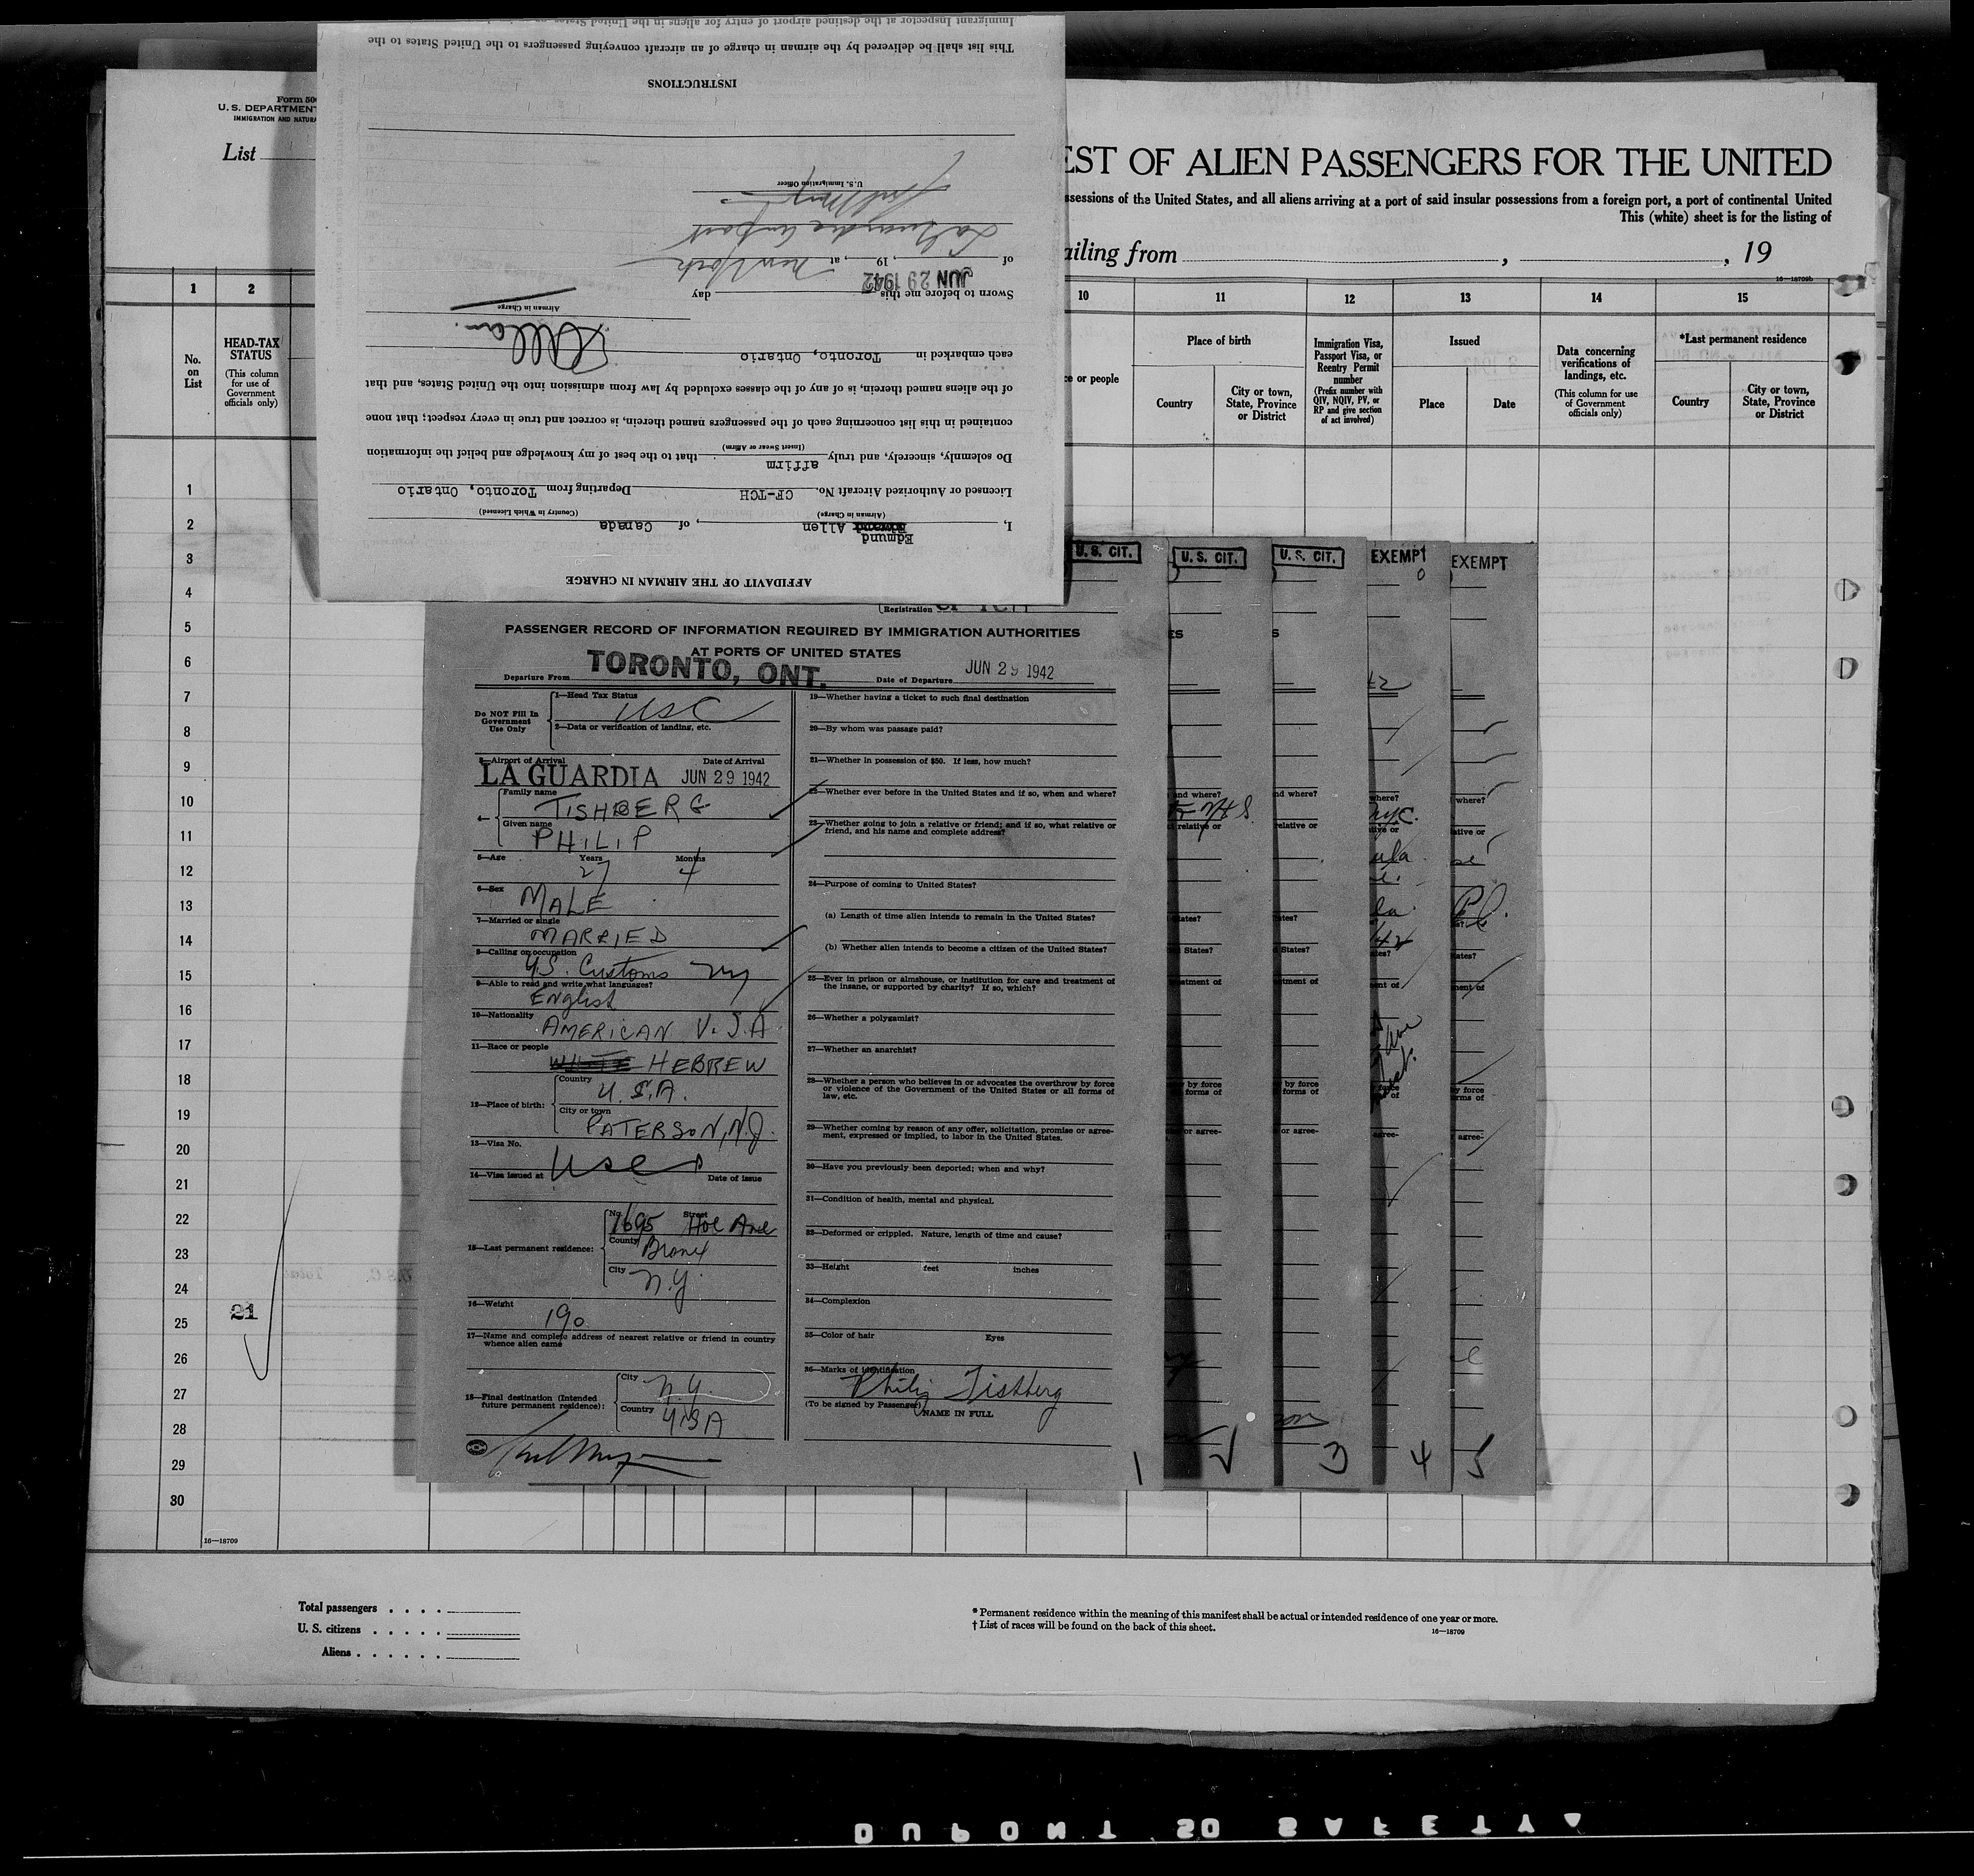 Form 500
U. S. DEPARTMENT
IMMIGRATION AND NATURA
List
EST OF ALIEN PASSENGERS FOR THE UNITED
ssessions of the United States, and all aliens arriving at a port of said insular possessions from a foreign port, a port of continental United
This (white) sheet is for the listing of
ailing from , , 19
16—18709b
1 2 10 11 12 13 14 15
No. on List
HEAD-TAX STATUS
(This column for use of Government officials only)
e or people
Place of birth
Country
City or town, State, Province or District
Immigration Visa, Passport Visa, or Reentry Permit number
(Prefix number with QIV, NQIV, PV, or RP and give section of act involved)
Issued
Place
Date
Data concerning verifications of landings, etc.
(This column for use of Government officials only)
*Last permanent residence
Country
City or town, State, Province or District
1
2
3
4
5
6
7
8
9
10
11
12
13
14
15
16
17
18
19
20
21
22
23
24
25
26
27
28
29
30
21
16—18709
AFFIDAVIT OF THE AIRMAN IN CHARGE
Edmund
I, Allen, of Canada
(Airman in Charge) (Country in Which Licensed)
Licensed or Authorized Aircraft No. CF-TCH Departing from Toronto, Ontario
affirm
Do solemnly, sincerely, and truly that to the best of my knowledge and belief the information
(Insert Swear or Affirm)
contained in this list concerning each of the passengers named therein, is correct and true in every respect; that none
of the aliens named therein, is of any of the classes excluded by law from admission into the United States, and that
each embarked in Toronto, Ontario
Airman in Charge
Sworn to before me this JUN 29 1942 day
of , 19 , at New York
La Guardia Airport
U.S. Immigration Officer
INSTRUCTIONS
This list shall be delivered by the airman in charge of an aircraft conveying passengers to the United States to the
Immigrant Inspector at the destined airport of entry for aliens in the United States
U. S. CIT.
U. S. CIT.
U. S. CIT.
EXEMPT
EXEMPT
Registration CF TCH
PASSENGER RECORD OF INFORMATION REQUIRED BY IMMIGRATION AUTHORITIES
AT PORTS OF UNITED STATES
Departure From TORONTO, ONT. Date of Departure JUN 29 1942
Do NOT Fill In Government Use Only
1—Head Tax Status USC
2—Data or verification of landing, etc.
3—Airport of Arrival Date of Arrival
LA GUARDIA JUN 29 1942
4— Family name TISHBERG
Given name PHILIP
5—Age Years 27 Months 4
6—Sex MALE
7—Married or single MARRIED
8—Calling or occupation U.S. Customs
9—Able to read and write what languages? English
10—Nationality AMERICAN U.S.A
11—Race or people WHITE HEBREW
12—Place of birth: Country U.S.A.
City or town PATERSON, N.J.
13—Visa No.
14—Visa issued at Date of issue
15—Last permanent residence: No. 1695 Street Hoe Ave
County Bronx
City N.Y.
16—Weight 190
17—Name and complete address of nearest relative or friend in country
whence alien came
18—Final destination (Intended future permanent residence): City N.Y.
Country USA
19—Whether having a ticket to such final destination
20—By whom was passage paid?
21—Whether in possession of $50. If less, how much?
22—Whether ever before in the United States and if so, when and where?
23—Whether going to join a relative or friend; and if so, what relative or
friend, and his name and complete address?
24—Purpose of coming to United States?
(a) Length of time alien intends to remain in the United States?
(b) Whether alien intends to become a citizen of the United States?
25—Ever in prison or almshouse, or institution for care and treatment of
the insane, or supported by charity? If so, which?
26—Whether a polygamist?
27—Whether an anarchist?
28—Whether a person who believes in or advocates the overthrow by force
or violence of the Government of the United States or all forms of
law, etc.
29—Whether coming by reason of any offer, solicitation, promise or agree-
ment, expressed or implied, to labor in the United States.
30—Have you previously been deported; when and why?
31—Condition of health, mental and physical.
32—Deformed or crippled. Nature, length of time and cause?
33—Height feet inches
34—Complexion
35—Color of hair Eyes
36—Marks of identification
Philip Tishberg
(To be signed by Passenger) NAME IN FULL
1 2 3 4 5
Total passengers . . . .
U. S. citizens . . . . .
Aliens . . . . . .
* Permanent residence within the meaning of this manifest shall be actual or intended residence of one year or more.
† List of races will be found on the back of this sheet.
16—18709
DUPONT SAFETY